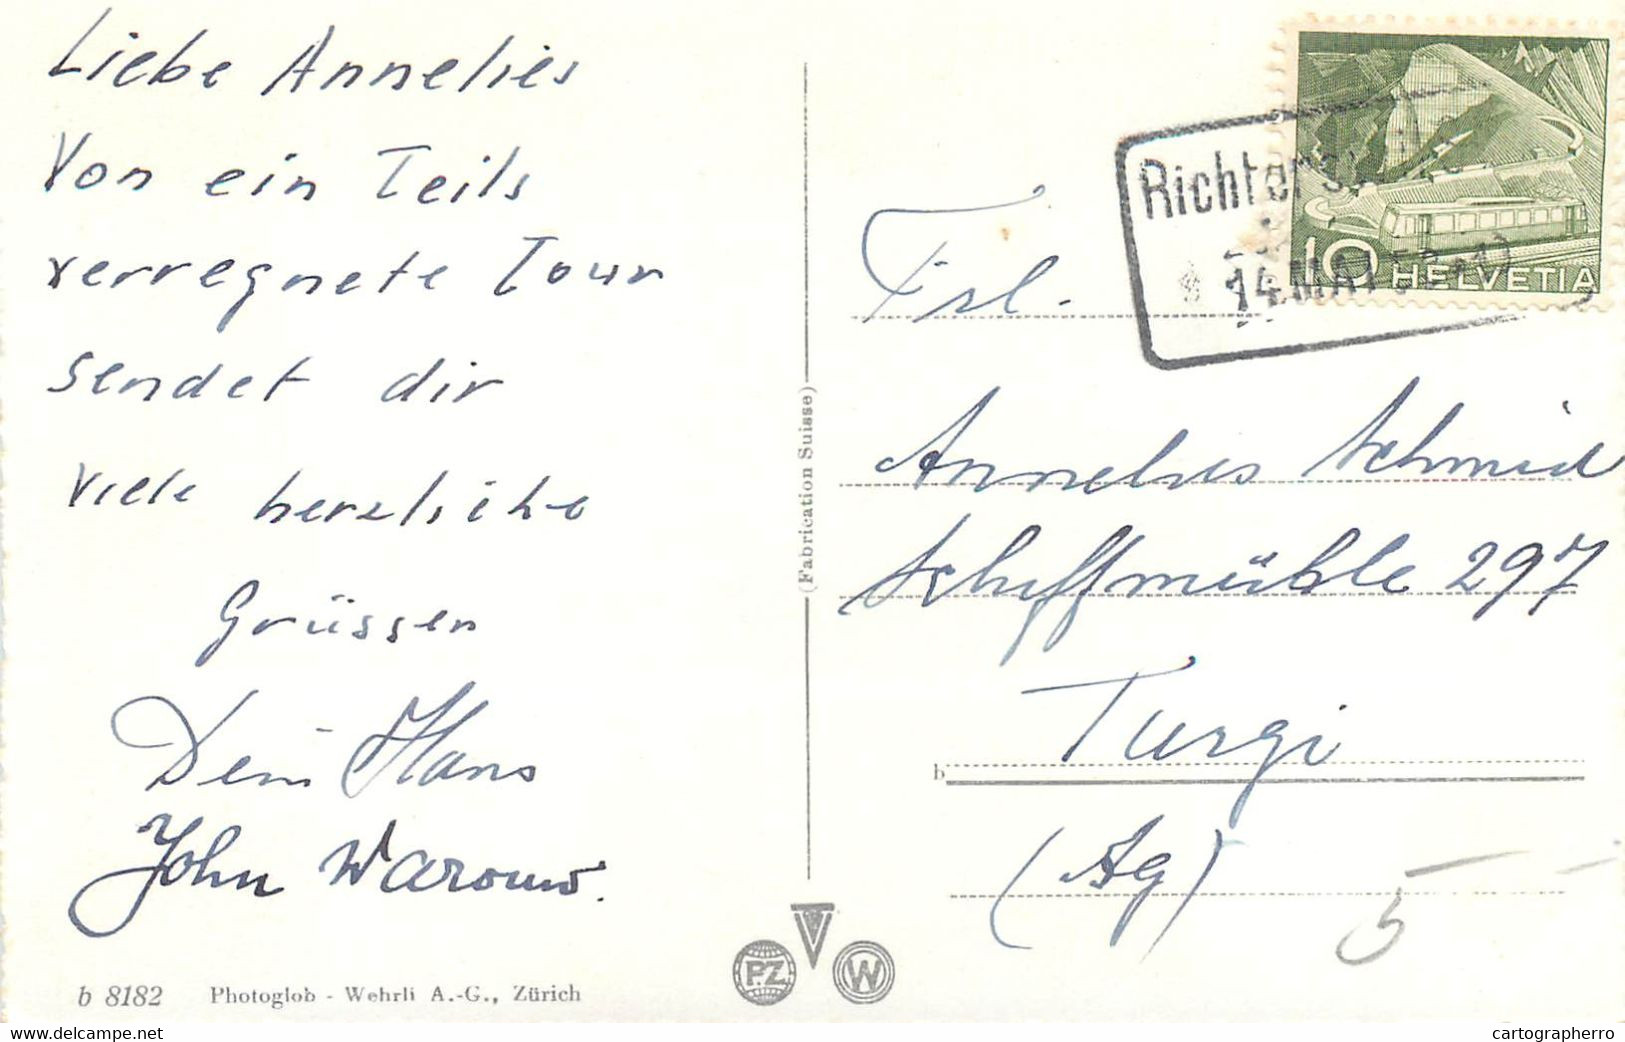 Liebe Annelies
Von ein Teils
verregnete Tour
sendet dir
viele herzliche
Grüssen
Dein Hans
John
b 8182 Photoglob - Wehrli A.-G., Zürich
(Fabrication Suisse)
PZ
W
14.MAI
10 HELVETIA
Frl.
Annelies Schmid
Schiffmühle 297
b
Turgi
(Ag)
5
www.delcampe.net
cartographerro